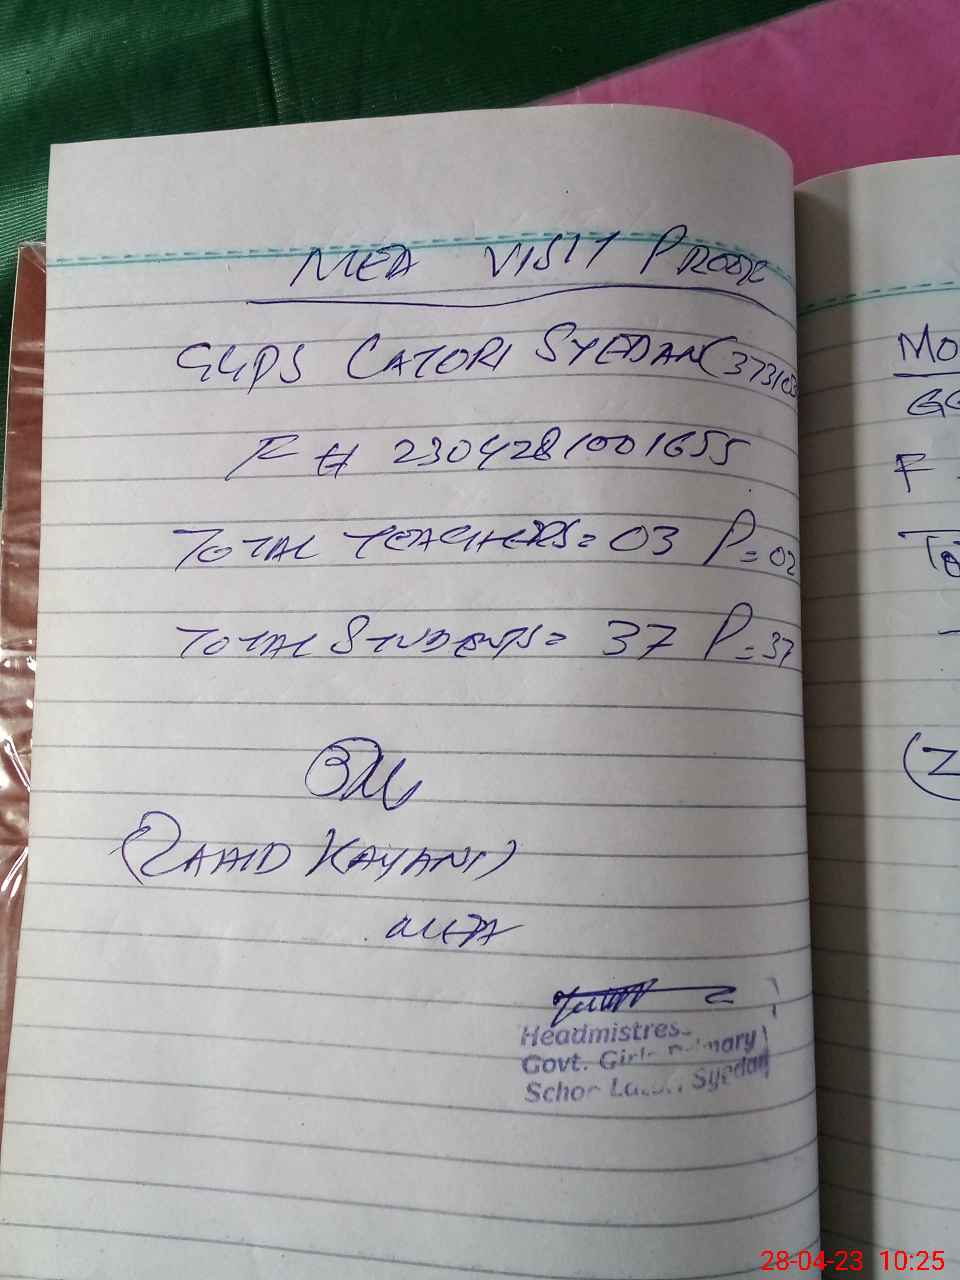 MEA VISIT PROOF
GGPS LATORI SYEDAN (373103
F # 2304281001655
TOTAL TEACHERS = 03 P = 02
TOTAL STUDENTS = 37 P = 37
(ZAHID KAYANI)
MEA
Headmistress
Govt. Girls Primary
School Latori Syedan
MO
GG
F
TO
(Z
28-04-23 10:25